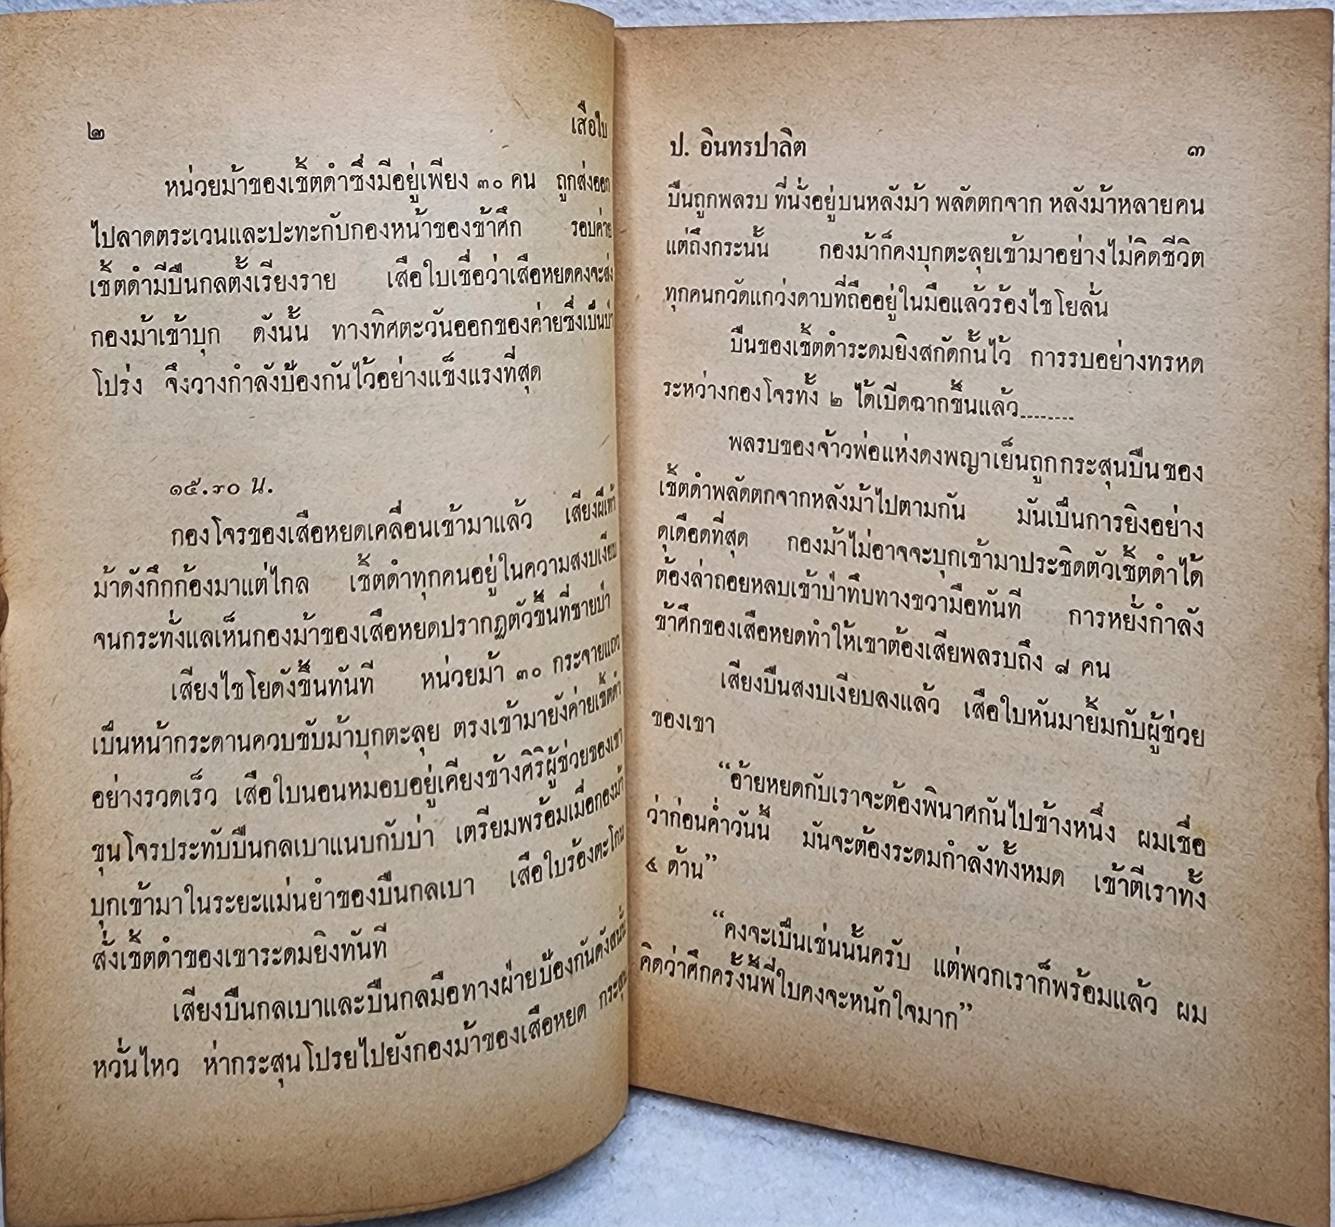 ๒ เสือใบ
หน่วยม้าของเช็ตดำซึ่งมีอยู่เพียง ๓๐ คน ถูกส่งออก
ไปลาดตระเวนและปะทะกับกองหน้าของข้าศึก รอบค่าย
เช็ตดำมีปืนกลตั้งเรียงราย เสือใบเชื่อว่าเสือหยดคงจะส่ง
กองม้าเข้าบุก ดังนั้น ทางทิศตะวันออกของค่ายซึ่งเป็นป่า
โปร่ง จึงวางกำลังป้องกันไว้อย่างแข็งแรงที่สุด
๑๕.๓๐ น.
กองโจรของเสือหยดเคลื่อนเข้ามาแล้ว เสียงฝีเท้า
ม้าดังกึกก้องมาแต่ไกล เช็ตดำทุกคนอยู่ในความสงบเงียบ
จนกระทั่งแลเห็นกองม้าของเสือหยดปรากฏตัวขึ้นที่ชายป่า
เสียงไชโยดังขึ้นทันที หน่วยม้า ๓๐ กระจายแถว
เป็นหน้ากระดานควบขับม้าบุกตะลุย ตรงเข้ามายังค่ายเช็ตดำ
อย่างรวดเร็ว เสือใบนอนหมอบอยู่เคียงข้างศิริผู้ช่วยของเขา
ขุนโจรประทับปืนกลเบาแนบกับบ่า เตรียมพร้อมเมื่อกองม้า
บุกเข้ามาในระยะแม่นยำของปืนกลเบา เสือใบร้องตะโกน
สั่งเช็ตดำของเขาระดมยิงทันที
เสียงปืนกลเบาและปืนกลมือทางฝ่ายป้องกันดังสนั่น
หวั่นไหว ห่ากระสุนโปรยไปยังกองม้าของเสือหยด กระสุน
ป. อินทรปาลิต ๓
ปืนถูกพลรบ ที่นั่งอยู่บนหลังม้า พลัดตกจาก หลังม้าหลายคน
แต่ถึงกระนั้น กองม้าก็คงบุกตะลุยเข้ามาอย่างไม่คิดชีวิต
ทุกคนกวัดแกว่งดาบที่ถืออยู่ในมือแล้วร้องไชโยลั่น
ปืนของเช็ตดำระดมยิงสกัดกั้นไว้ การรบอย่างทรหด
ระหว่างกองโจรทั้ง ๒ ได้เปิดฉากขึ้นแล้ว........
พลรบของจ้าวพ่อแห่งดงพญาเย็นถูกกระสุนปืนของ
เช็ตดำพลัดตกจากหลังม้าไปตามกัน มันเป็นการยิงอย่าง
ดุเดือดที่สุด กองม้าไม่อาจจะบุกเข้ามาประชิดตัวเช็ตดำได้
ต้องล่าถอยหลบเข้าป่าทึบทางขวามือทันที การหยั่งกำลัง
ข้าศึกของเสือหยดทำให้เขาต้องเสียพลรบถึง ๘ คน
เสียงปืนสงบเงียบลงแล้ว เสือใบหันมายิ้มกับผู้ช่วย
ของเขา
“อ้ายหยดกับเราจะต้องพินาศกันไปข้างหนึ่ง ผมเชื่อ
ว่าก่อนค่ำวันนี้ มันจะต้องระดมกำลังทั้งหมด เข้าตีเราทั้ง
๔ ด้าน”
“คงจะเป็นเช่นนั้นครับ แต่พวกเราก็พร้อมแล้ว ผม
คิดว่าศึกครั้งนี้พี่ใบคงจะหนักใจมาก”